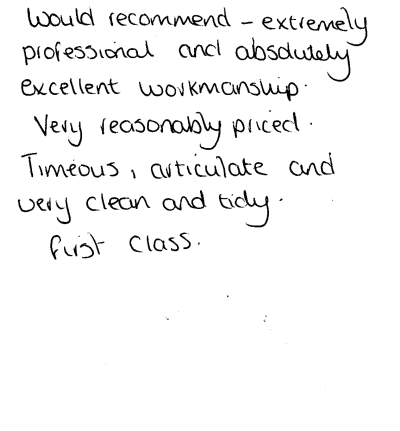 Would recommend - extremely
professional and absolutely
excellent workmanship.
Very reasonably priced.
Timeous, articulate and
very clean and tidy.
first class.